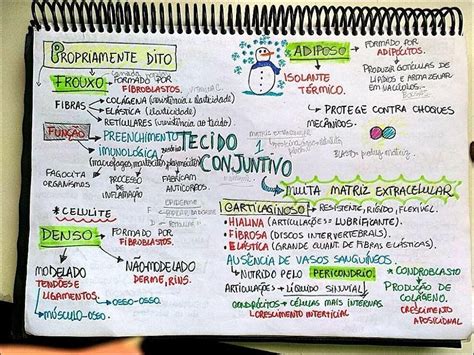 PROPRIAMENTE DITO
FROUXO
FORMADO POR
FIBROBLASTOS.
FIBRAS
COLÁGENA (resistência e elasticidade)
ELÁSTICA (elasticidade)
RETICULARES (resistência ao tecido).
FUNÇÃO
PREENCHIMENTO
IMUNOLÓGICA
(macrófagos, mastócitos, plasmócitos)
FAGOCITA
ORGANISMOS
PROCESSO
DE
INFLAMAÇÃO
FABRICAM
ANTICORPOS.
* CELULITE
EPIDERME
DENSO
FORMADO POR
FIBROBLASTOS.
MODELADO
TENDÕES E
LIGAMENTOS.
OSSO-OSSO.
MÚSCULO-OSSO.
NÃO-MODELADO
DERME, RINS.
TECIDO 1
CONJUNTIVO
ADIPOSO
FORMADO POR
ADIPÓCITOS.
PRODUZIR GOTÍCULAS DE
LIPÍDIOS E ARMAZENAR
EM VACÚOLOS.
ISOLANTE
TÉRMICO.
PROTEGE CONTRA CHOQUES
MECÂNICOS.
MUITA MATRIZ EXTRACELULAR
CARTILAGINOSO
RESISTENTE, RÍGIDO, FLEXÍVEL.
HIALINA (ARTICULAÇÕES LUBRIFICANTE).
FIBROSA (DISCOS INTERVERTEBRAIS).
ELÁSTICA (GRANDE QUANT. DE FIBRAS ELÁSTICAS).
AUSÊNCIA DE VASOS SANGUÍNEOS.
NUTRIDO PELO PERICÔNDRIO.
ARTICULAÇÕES LÍQUIDO SINUVIAL
CONDRÓCITOS CÉLULAS MAIS INTERNAS.
CRESCIMENTO INTERTICIAL
CONDROBLASTO
PRODUÇÃO DE
COLÁGENO.
CRESCIMENTO
APOSICIONAL